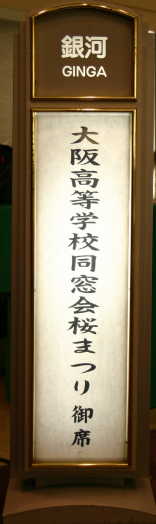 銀河
GINGA
大阪高等学校同窓会桜まつり 御席